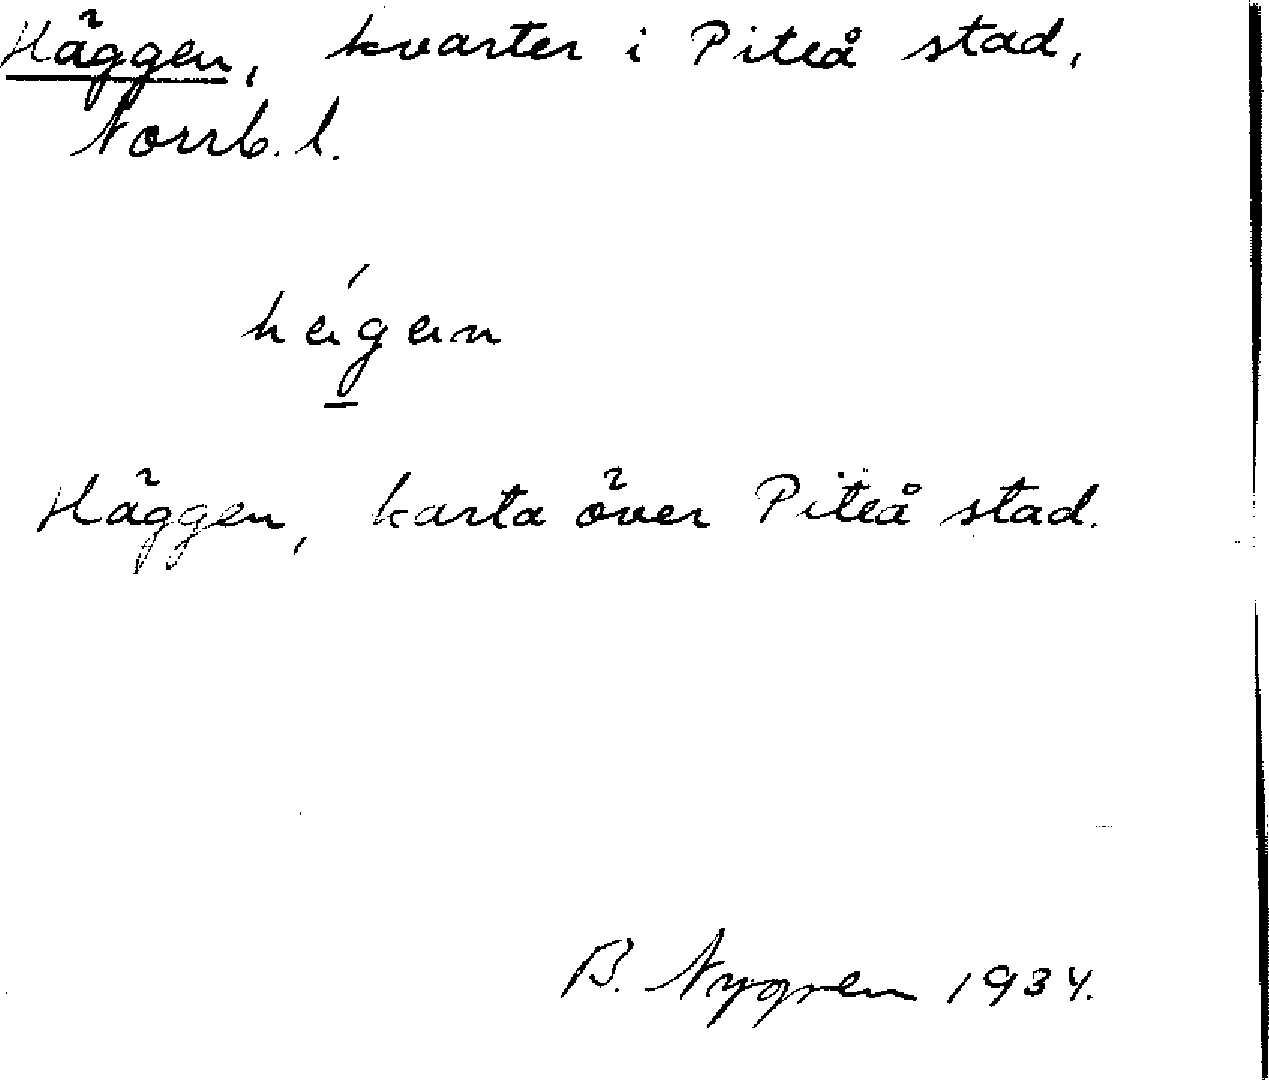 Häggen, kvarter i Piteå stad,
Norrb. l.
hä́gän
Häggen, karta över Piteå stad.
B. Nygren 1934.